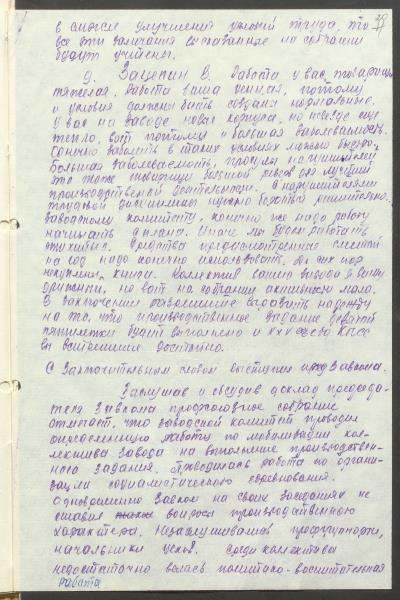 39
в смысле улучшения условий труда, то
все эти замечания высказанные на собрании
будут учтены.
9. Зацепин В. Работа у вас, товарищи
тяжелая. Работа ваша ценная, поэтому
и условия должны быть созданы нормальные.
У вас на заводе новые корпуса, но не везде еще
тепло, вот поэтому и большая заболеваемость.
Конечно заболеть в таких условиях можно быстро.
Большая заболеваемость, прогулы нарушителей
это тоже большой резерв для лучшей
производственной деятельности. С нарушителями
трудовой дисциплины нужно бороться решительно.
Заводскому комитету, конечно же надо работу
начинать с плана. Иначе мы будем работать
стихийно. Средства предусмотренные сметой
на год надо конечно использовать, до сих пор
не куплены книги. Коллектив вашего завода я вижу
дружный, но вот на собрании активность мала.
В заключение разрешите выразить надежду
на то, что производственное задание девятой
пятилетки будет выполнено и XXV съезд КПСС
вы встретите достойно.
С заключительным словом выступил пред завкома.
Заслушав и обсудив доклад председа-
теля завкома профсоюзное собрание
отмечает, что заводской комитет проводил
определенную работу по мобилизации кол-
лектива завода на выполнение производствен-
ного задания. Проводилась работа по органи-
зации социалистического соревнования.
Одновременно завком на своих заседаниях не
ставил вопросы производственного
характера. Не заслушивались профгрупорги,
начальники цехов. Среди коллектива
недостаточно велась политико-воспитательная
работа